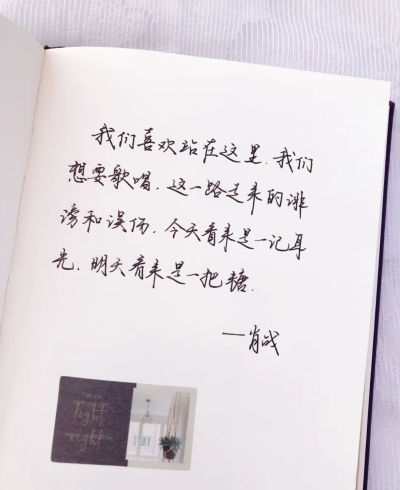 我们喜欢站在这里,我们
想要歌唱,这一路走来的诽
谤和误伤,今天看来是一记耳
光,明天看来是一把糖.
—肖战
light